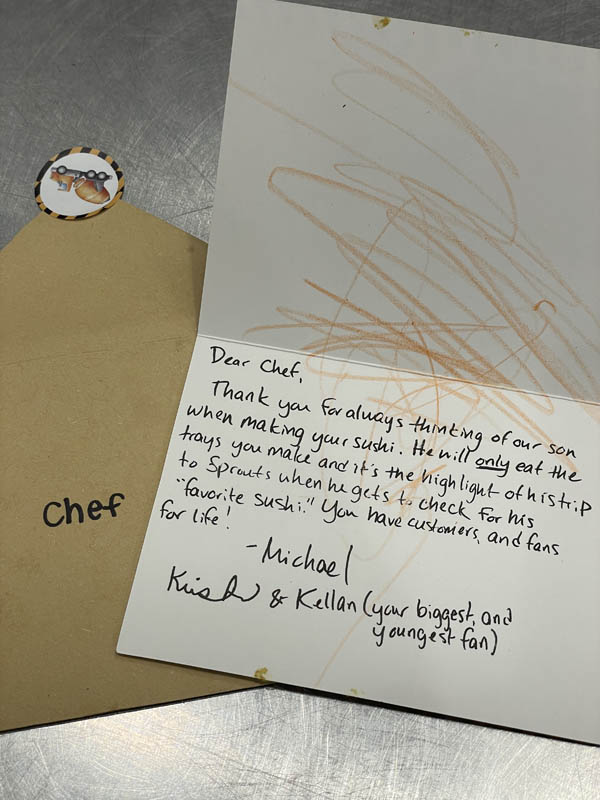 Chef
Dear Chef,
Thank you for always thinking of our son
when making your sushi. He will only eat the
trays you make and it's the highlight of his trip
to Sprouts when he gets to check for his
"favorite sushi." You have customers, and fans
for life!
- Michael
& Kellan (your biggest, and
youngest fan)